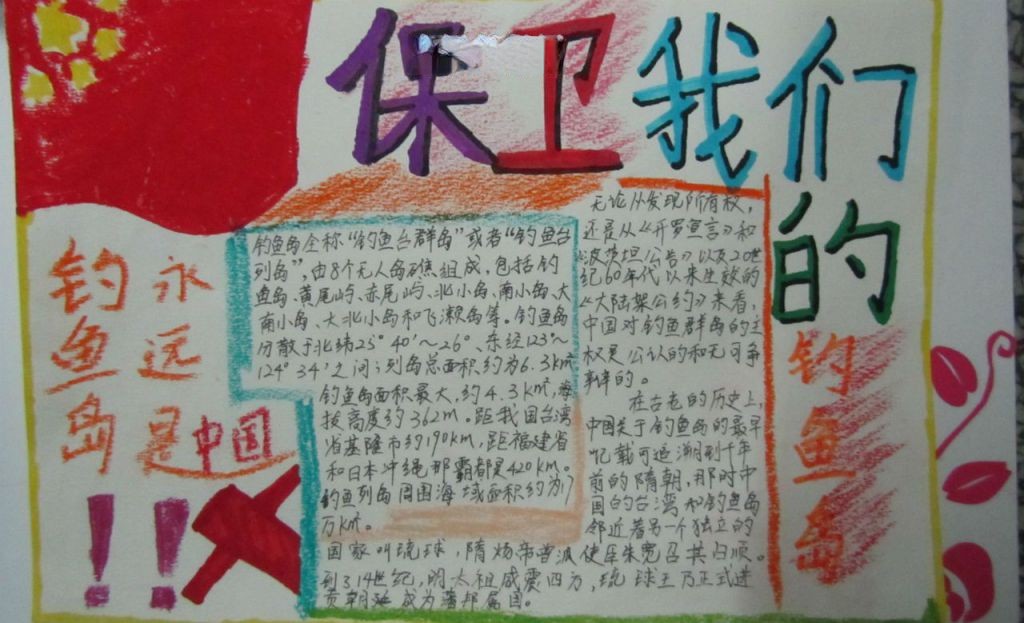 保卫我们
的
钓鱼岛
钓鱼岛
永远是中国
!!
钓鱼岛全称“钓鱼台群岛”或者“钓鱼台
列岛”,由8个无人岛礁组成,包括钓
鱼岛、黄尾屿、赤尾屿、北小岛、南小岛、大
南小岛、大北小岛和飞濑岛等。钓鱼岛
分散于北纬25°40′~26°、东经123°~
124°34′之间;列岛总面积约为6.3km²
钓鱼岛面积最大,约4.3km²,海
拔高度约362m。距我国台湾
省基隆市约190km,距福建省
和日本冲绳那霸都是420km。
钓鱼列岛周围海域面积约为17
万km²。
无论从发现所有权,
还是从《开罗宣言》和
《波茨坦公告》以及20世
纪60年代以来生效的
《大陆架公约》来看,
中国对钓鱼群岛的主
权是公认的和无可争
辩的。
在古老的历史上,
中国关于钓鱼岛的最早
记载可追溯到千年
前的隋朝,那时中
国的台湾和钓鱼岛
邻近着另一个独立的
国家叫琉球,隋炀帝曾派使臣朱宽召其归顺。
到了14世纪,明太祖威震四方,琉球王乃正式进
贡朝廷成为藩邦属国。